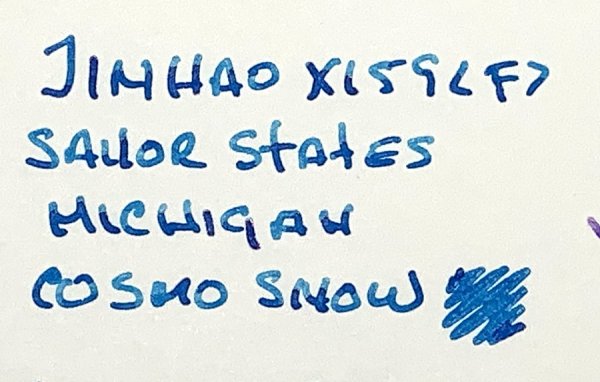 JINHAO X159 <F>
SAILOR StAtES
MICHIGAN
COSMO SNOW